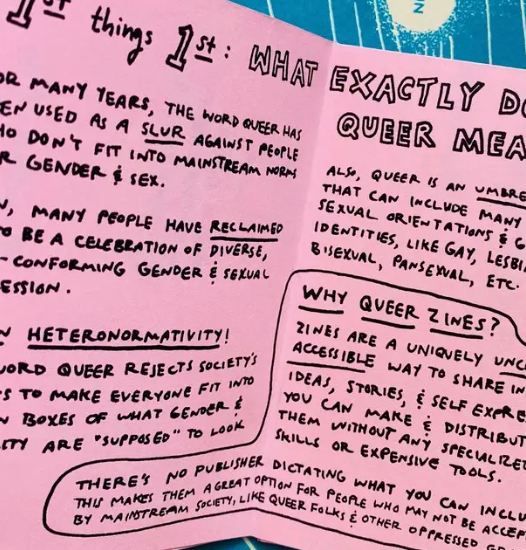 1st things 1st: WHAT EXACTLY
QUEER
MANY YEARS, THE WORD QUEER HAS
USED AS A SLUR AGAINST PEOPLE
DON'T FIT INTO MAINSTREAM NORMS
GENDER & SEX.
MANY PEOPLE HAVE RECLAIMED
BE A CELEBRATION OF DIVERSE,
-CONFORMING GENDER & SEXUAL
HETERONORMATIVITY!
WORD QUEER REJECTS SOCIETY'S
TO MAKE EVERYONE FIT INTO
BOXES OF WHAT GENDER &
ARE "SUPPOSED" TO LOOK
ALSO, QUEER IS AN
THAT CAN INCLUDE MANY
SEXUAL ORIENTATIONS &
IDENTITIES, LIKE GAY,
BISEXUAL, PANSEXUAL, ETC.
WHY QUEER ZINES?
ZINES ARE A UNIQUELY
ACCESSIBLE WAY TO SHARE
IDEAS, STORIES, & SELF
YOU CAN MAKE &
THEM WITHOUT ANY
SKILLS OR EXPENSIVE TOOLS.
THERE'S NO PUBLISHER DICTATING WHAT YOU CAN
THIS MAKES THEM A GREAT OPTION FOR PEOPLE WHO MAY NOT BE
BY MAINSTREAM SOCIETY, LIKE QUEER FOLKS & OTHER OPPRESSED